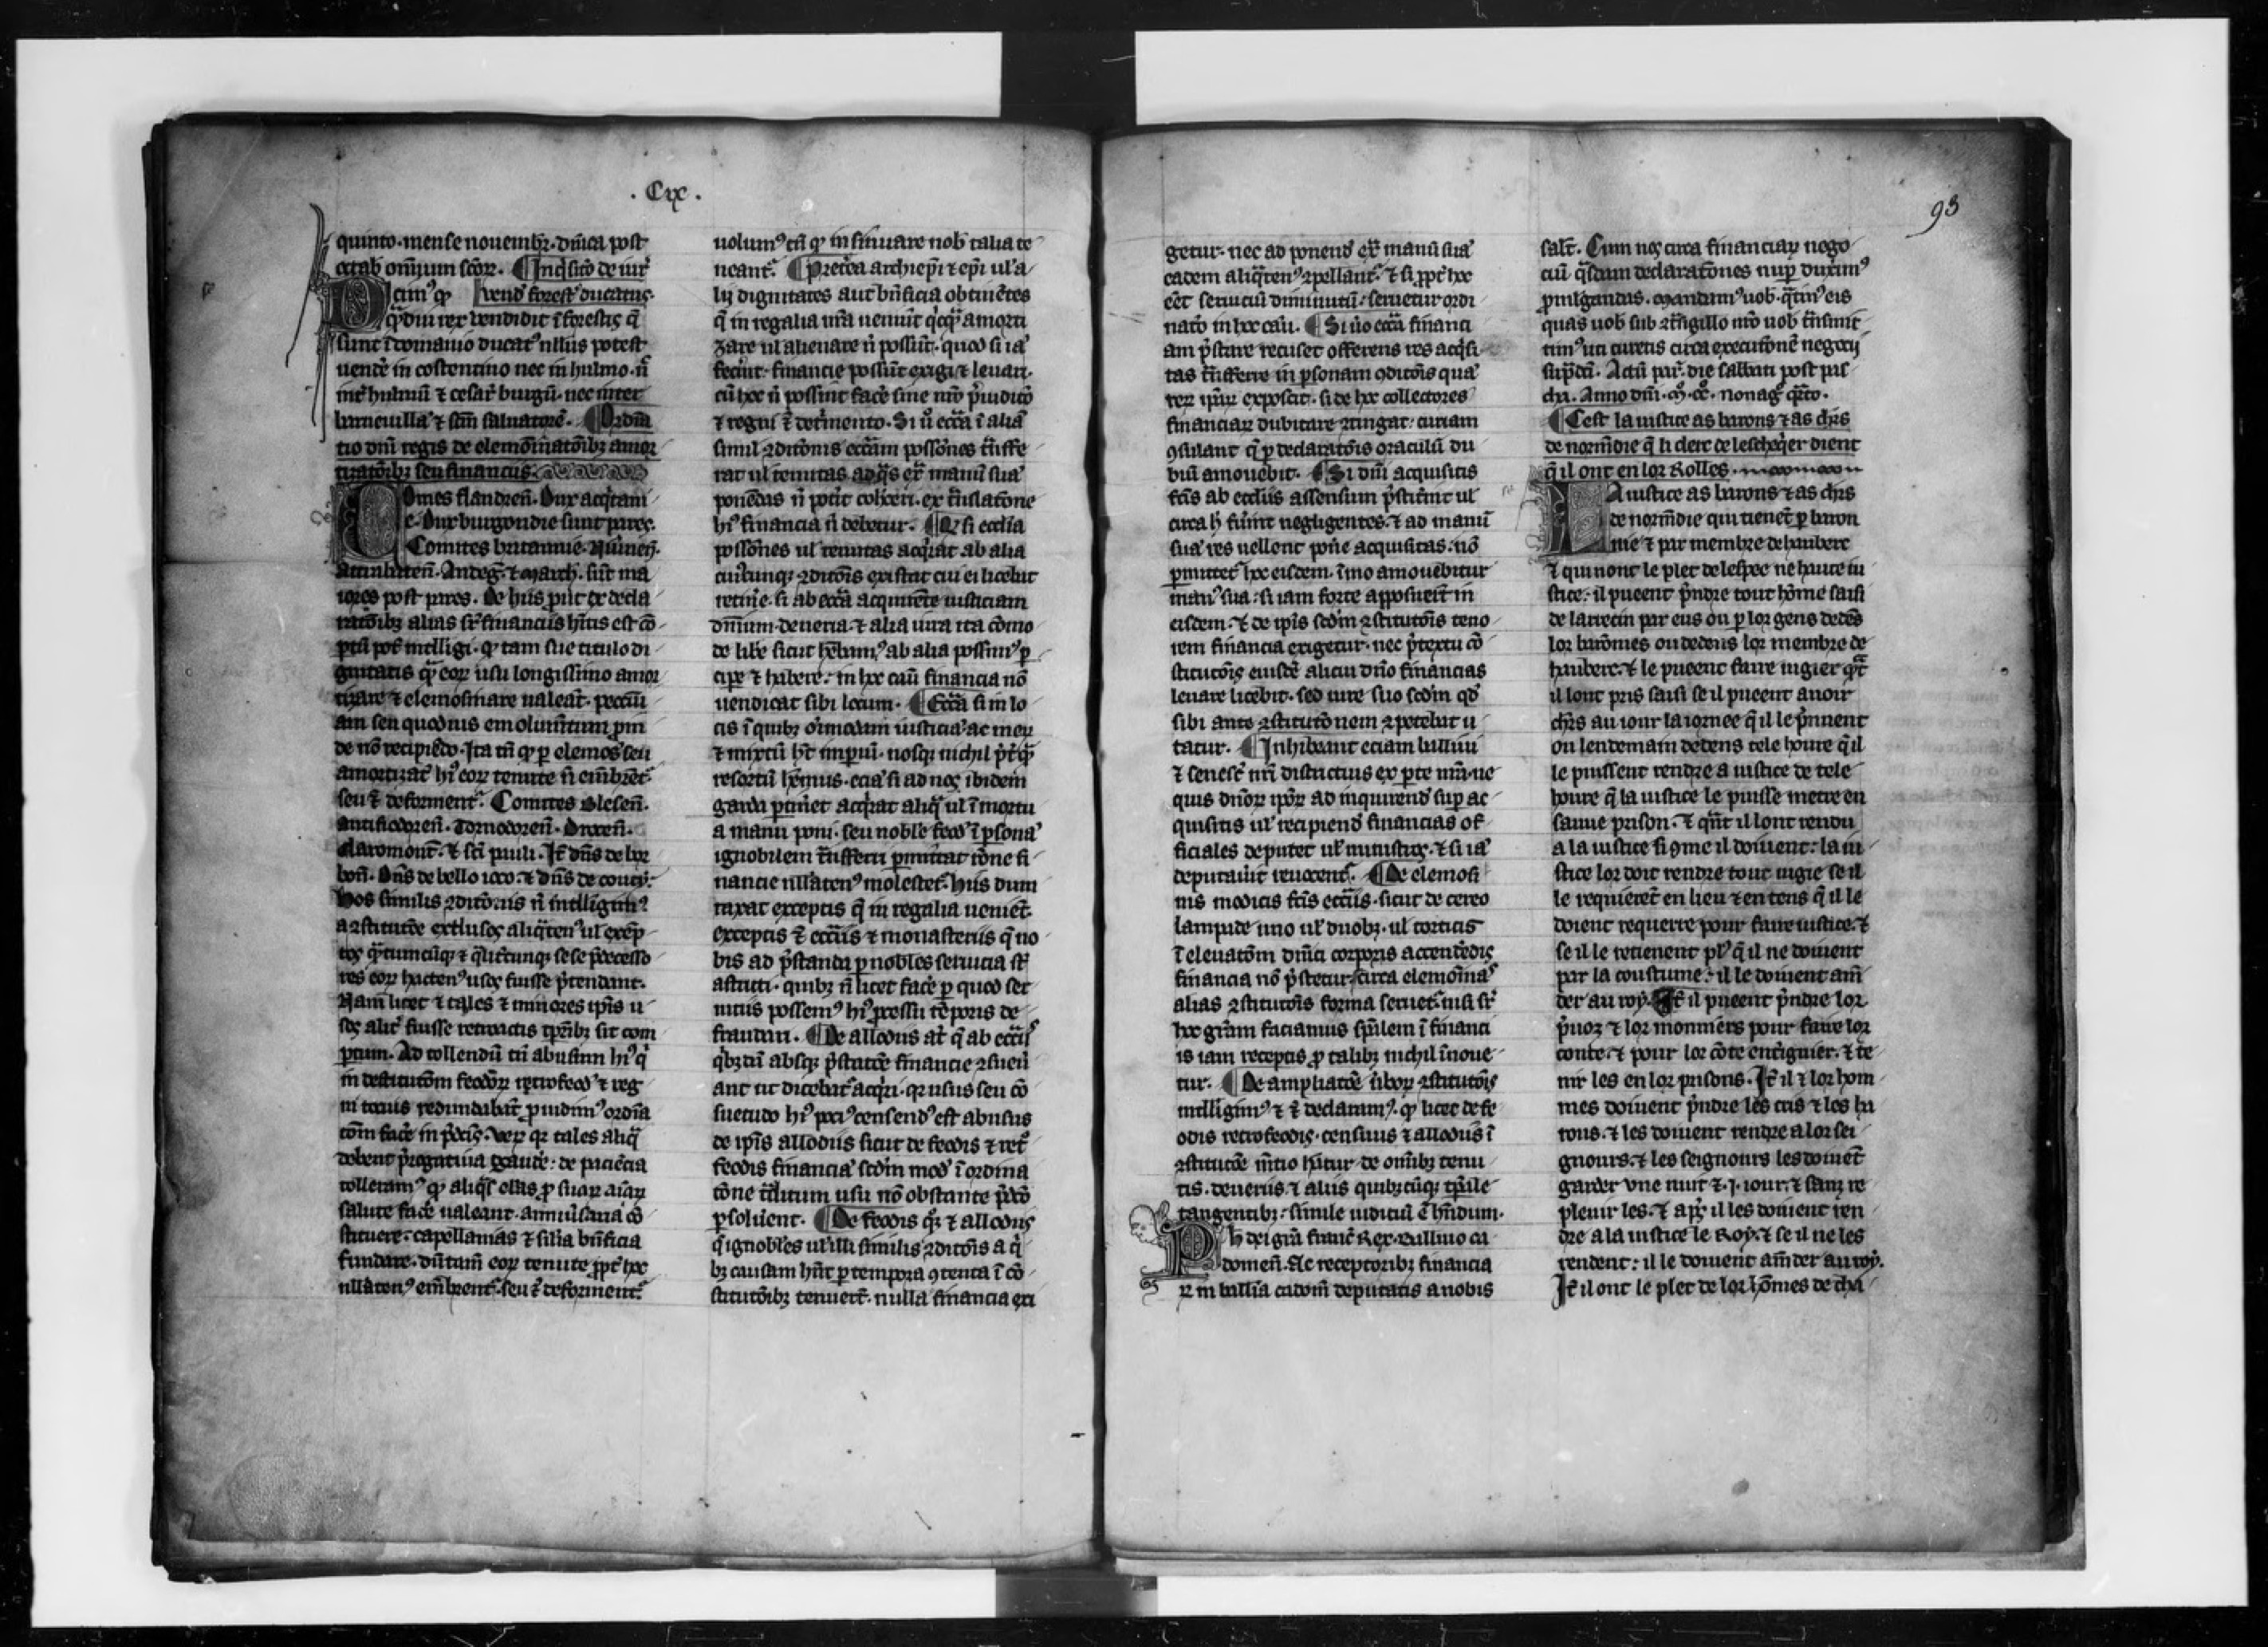 . Cix .
quinto. mense nouembr̃. dn̄ica post
octab̃ om̄ium scōꝝ. ¶ Inq̄sitō de iur̃
Dicim⁹ qͥ vend̃ forest̃ ducatus.
qͣmdiu rex vendidit ī forestis q̄
sunt ī domanio ducat⁹ nllus potest
uende᷒ in costentino nec in hulmo. n̄
int̃ hulmū ⁊ cesar̃ burgū. nec inter
barneuillā ⁊ sc̄m saluatorē. ¶ Ordīa
tio dn̄i regis de elemōinatōibꝫ amor
tizatōibꝫ seu financiis.
Comes flandren̄. Dux acq̇tani
e. Dux burgondie sunt pares.
Comites britannie. Niuern̄.
Attrabaten̄. Andeg̃. ⁊ March̃. sūt ma
iores post pares. De hiis put̃ de decla
ratōibꝫ alias sr̃ financiis hītis est cō
ptū pot̃ intelligi. qͥ tam sue titulo di
gnitatis qͣ eoꝝ usu longissimo amor
tizare ⁊ elemosinare ualeāt. peccūi
am seu quoduis emolumētum pin
de nō recipiēdo. Ita tn̄ qͥ ꝑ elemos̃ seu
amortizat̃ hi⁹ eoꝝ tenute n̄ emēbrēt̃
seu ⁊ deforment̃. Comites Blesen̄.
antisiodoren̄. Tornodoren̄. Drocen̄.
Claromont̃. ⁊ sc̄i pauli. It̃ dn̄s de bor
bon̄. Dn̄s de bello ioco. ⁊ dn̄s de coucy.
hos similis ꝯditōnis n̄ intelligim⁹
a ꝯstitutōe exclusos aliq̃ten⁹ ul̃ exēp
tos qͣtumcūqꝫ ⁊ qͣlit̃cunqꝫ se se p̃decesso
res eoꝝ hacten⁹ usos fuisse p̃tendant.
Nam licet ⁊ tales ⁊ minores ip̄is u
sos alit̃ fuisse retroactis tp̄ribꝫ sit com
pertum. Ad tollendū tn̄ abusum hi⁹ q̇
in destitutōm feodoꝝ retrofeod⁹ ⁊ reg
ni tocius redundabat̃ puidim⁹ ordīa
tōm face᷒ in p̃dc̃is. veꝝ qꝛ tales aliq̄
debent p̃rogatiua gaude᷒: de paciēcia
tolleram⁹ qͥ aliqͣs elas̃ ꝓ suaꝝ aīaꝝ
salute face᷒ ualeant. anniu̾saria cō
stituere. capellanias ⁊ silia bn̄ficia
fundare. dūtam̄ eoꝝ tenute ꝓpt̃ hoc
nllaten⁹ emēbrent̃. seu ⁊ deforment̃.
uolum⁹ tn̄ qͥ insinuare nob̃ talia te
neant̃. ¶ Pret̃ea archiep̄i ⁊ ep̄i ul̃ a
lii dignitates aut bn̄ficia obtinētes
q̄ in regalia nr̄a ueniūt q̇cqͣ amorti
zare ul̃ alienare n̄ possūt. quod si iā
fec̃int. financie possūt exigi ⁊ leuari.
cū hoc n̄ possint face᷒ sine nr̄o p̃iudicō
⁊ regni ⁊ det̃mento. Si u̾o eccā ī aliā
simil̃ ꝯditōnis ecc̄am possōnes t̃nsfe
rat ul̃ tenutas ad q̄s ex̃ manū suā
ponēdas n̄ potūt cohc̃eri. ex t̃nslatōne
hi⁹ financia n̄ debetur. ¶ Qd̃ si ecclia
possōnes ul̃ tenutas acq̇rat ab alia
cui⁹cunqꝫ ꝯditōis existat cui ei licebit
retine᷒. si ab eccā acquirēte iusticiam
dn̄ium. deueria. ⁊ alia iura ita cōmo
de libe᷒ sicut hēbam⁹ ab alia possim⁹ ꝑ
cipe᷒ ⁊ habere: in hoc casū financia nō
uendicat sibi locum. ¶ Eccā si in lo
cis ī quibꝫ oī̾modam iusticiā ac meꝝ
⁊ mixtū hēt imꝑiū. nosqꝫ nichil p̃t̃ qͣ
resortū hēmus. eciā si ad nos ibidem
garda ꝑtinet acq̇rat aliq̄ ul̃ ī mortu
a manu poni. seu noble feod̃ ī ꝑsonā
ignobilem t̃nsferri ꝑmittat rōne fi
nancie nllaten⁹ molestet̃. hiis dum
taxat exceptis q̄ in regalia ueniēt.
exceptis ⁊ ecc̄iis ⁊ monasteriis q̄ no
bis ad p̃standū ꝑ nobles seruicia sūt
astricti. quibꝫ n̄ licet face᷒ ꝑ quod ser
uiciis possem⁹ hi⁹ ꝓcessu tēporis de
fraudari. ¶ De allodiis at̃ q̄ ab ecc̄iis
q̇bꝫdā absqꝫ p̃statōe financie ꝯsueu̾
ant ut dicebat̃ acq̇ri. qꝛ usus seu cō
suetudo hi⁹ poci⁹ censend⁹ est abusus
de ip̄is allodiis sicut de feodis ⁊ ret̃
feodis financiā sc̄dm mod̃ ī ordina
tōne t̃ditum usu nō obstante p̃dc̃o
ꝑsoluent. ¶ De feodis qͦꝫ ⁊ allodiis
q̄ ignobles ul̃ illi similis ꝯditōis a q̇
bꝫ causam hn̄t ꝑ tempora ꝯtenta ī cō
stitutōibꝫ tenuer̃t. nulla financia exi
93
getur. nec ad ponend̃ ex̃ manū suā
eadem aliq̃ten⁹ ꝯpellant̃. ⁊ si ꝓpt̃ hoc
eēt seruiciū diminutū: seruetur ordi
nato in hoc casu. ¶ Si u̾o eccā financi
am p̃stare recuset offerens res acq̇si
tas t̃nsferre in ꝑsonam ꝯditōis quā
reꝝ ip̄aꝝ exposcit. si de hoc collectores
financiaꝝ dubitare ꝯtingat: curiam
ꝯsulant q̄ ꝑ declaratōis oraculū du
biū amouebit. ¶ Si dn̄i acquisitis
fc̄is ab ecc̄iis assensum p̃stit̃int ul̃
circa h̃ fu̾int negligentes. ⁊ ad manū
suā res uellent pone᷒ acquisitas. nō
ꝑmittet̃ hoc eisdem. īmo amouebitur
man⁹ sua: si iam forte apposuerīt in
eisdem. ⁊ de ip̄is sc̄dm ꝯstitutōis teno
rem financia exigetur. nec p̃textu cō
stitutōis eiusdē alicui dn̄o financias
leuare licebit. sed iure suo sc̄dm qd̃
sibi ante ꝯstitutōnem ꝯpetebat u
tatur. ¶ Inhibeant eciam balliui
⁊ senesc̃ nr̄i districtius ex ꝑte nr̄a. ne
quis dn̄oꝝ ip̄oꝝ ad inquirend̃ suꝑ ac
quisitis ul̃ recipiend̃ financias of
ficiales deputet ul̃ ministros. ⁊ si iā
deputau̾it reuocent̃. ¶ De elemosi
nis modicis fc̄is ecc̄iis. sicut de cereo
lampade uno ul̃ duobꝫ. ul̃ torticiis
ī eleuatōm dn̄ici corporis accendēdis
financia nō p̃stetur. circa elemōinas
alias ꝯstitutōis forma seruet̃. nisi sr̃
hoc gr̄am faciamus sp̄alem ī financi
is iam receptis ꝓ talibꝫ nichil īnoue
tur. ¶ De ampliatōe ꝟboꝝ ꝯstitutōis
intelligim⁹ ⁊ ⁊ declaram⁹. qͥ licet de fe
odis retrofeodis. censiuis ⁊ allodiis ī
ꝯstitutōe mentio hītur. de om̄ibꝫ tenu
tis. deueriis. ⁊ aliis quibꝫcūqꝫ tp̄ale
tangentibꝫ: simile iudiciū ē hn̄dum.
Ph̃ dei gr̄a franc̃ Rex. ballivo ca
domen̄. Ac receptoribꝫ financia
ꝝ in ballia cadom̄ deputatis a nobis
salt̃. Cum nos circa financiaꝝ nego
ciū q̄sdam declaratōnes nuꝑ duxim⁹
ꝓmlgandas. Mandam⁹ uob̃. q̄tin⁹ eis
quas uob̃ sub ꝯt̃sigillo nr̄o uob̃ t̃nsmit
tim⁹ uti curetis circa executōnē negocij
sup̃dc̃i. Actū par̃. die sabbati post pas
cha. Anno dn̄i. mͦ. ccͦ. nonagͦ. qͣrto.
¶ Cest la iustice as barons ⁊ as chr̃s
de norm̄die q̄ li clerc de lescheq̇er dient
q̄ il ont en lor Rolles.
La iustice as barons ⁊ as chr̃s
de norm̄die qui tienēt ꝑ baron
nie ⁊ par membre de haubere
⁊ qui n̄ont le plet de lespee ne haute iu
stice: il pueent p̃ndre tout hōme saisi
de larrecin par eus ou ꝑ lor gens dedēs
lor barōnies ou dedens lor membre de
haubere. ⁊ le pueent faire iugier qͣr
il lont pris saisi se il pueent auoir
chr̃s au iour la iornee q̄ il le p̃nnent
ou lendemain dedens tele houre q̄ il
le puissent rendre a iustice de tele
houre q̄ la iustice le puisse metre en
sauue prison. ⁊ q̃nt il lont rendu
a la iustice si ꝯme il doiuent: la iu
stice lor doit rendre tout iugie se il
le requierēt en lieu ⁊ en tens q̄ il le
doient requerre pour faire iustice. ⁊
se il le retienent pl⁹ q̄ il ne doiuent
par la coustume: il le doiuent am̄
der au roy. It̃ il pueent p̃ndre lor
p̃uoz ⁊ lor monniers pour faire lor
conte. ⁊ pour lor cōte ens̃ignier. ⁊ te
nir les en lor prisons. It̃ il ⁊ lor hom
mes doiuent p̃ndre les cris ⁊ les ha
rous. ⁊ les doiuent rendre a lor sei
gnours. ⁊ les seignours les doiuēt
garder vne nuit ⁊ .j. iour. ⁊ sanz re
pleuir les. ⁊ ap̃s il les doiuent ren
dre a la iustice le Roy. ⁊ se il ne les
rendent: il le doiuent am̄der au roy.
It̃ il ont le plet de lor hōmes de cha